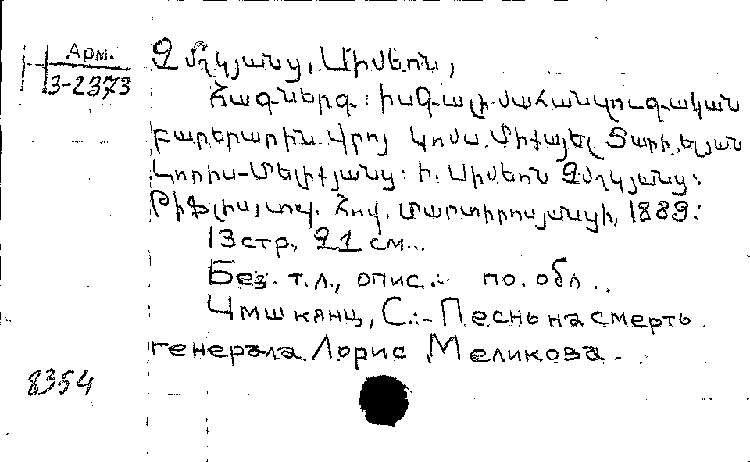 Арм.
3-2373
Չմշկյանց, Սիմեոն,
Հագներգ: ի մահ
բարերարին Կոմս. Միքայել Տարիելյան
Լորիս-Մելիքյանց: Ի. Սիմեոն Չմշկյանց:
Թիֆլիս, տպ. Հով. Մարտիրոսյանցի, 1889:
13 стр., 21 см..
Без. т. л., опис.: по. обл..
Чмшкянц, С.:- Песнь на смерть
генерала Лорис Меликова.
8354